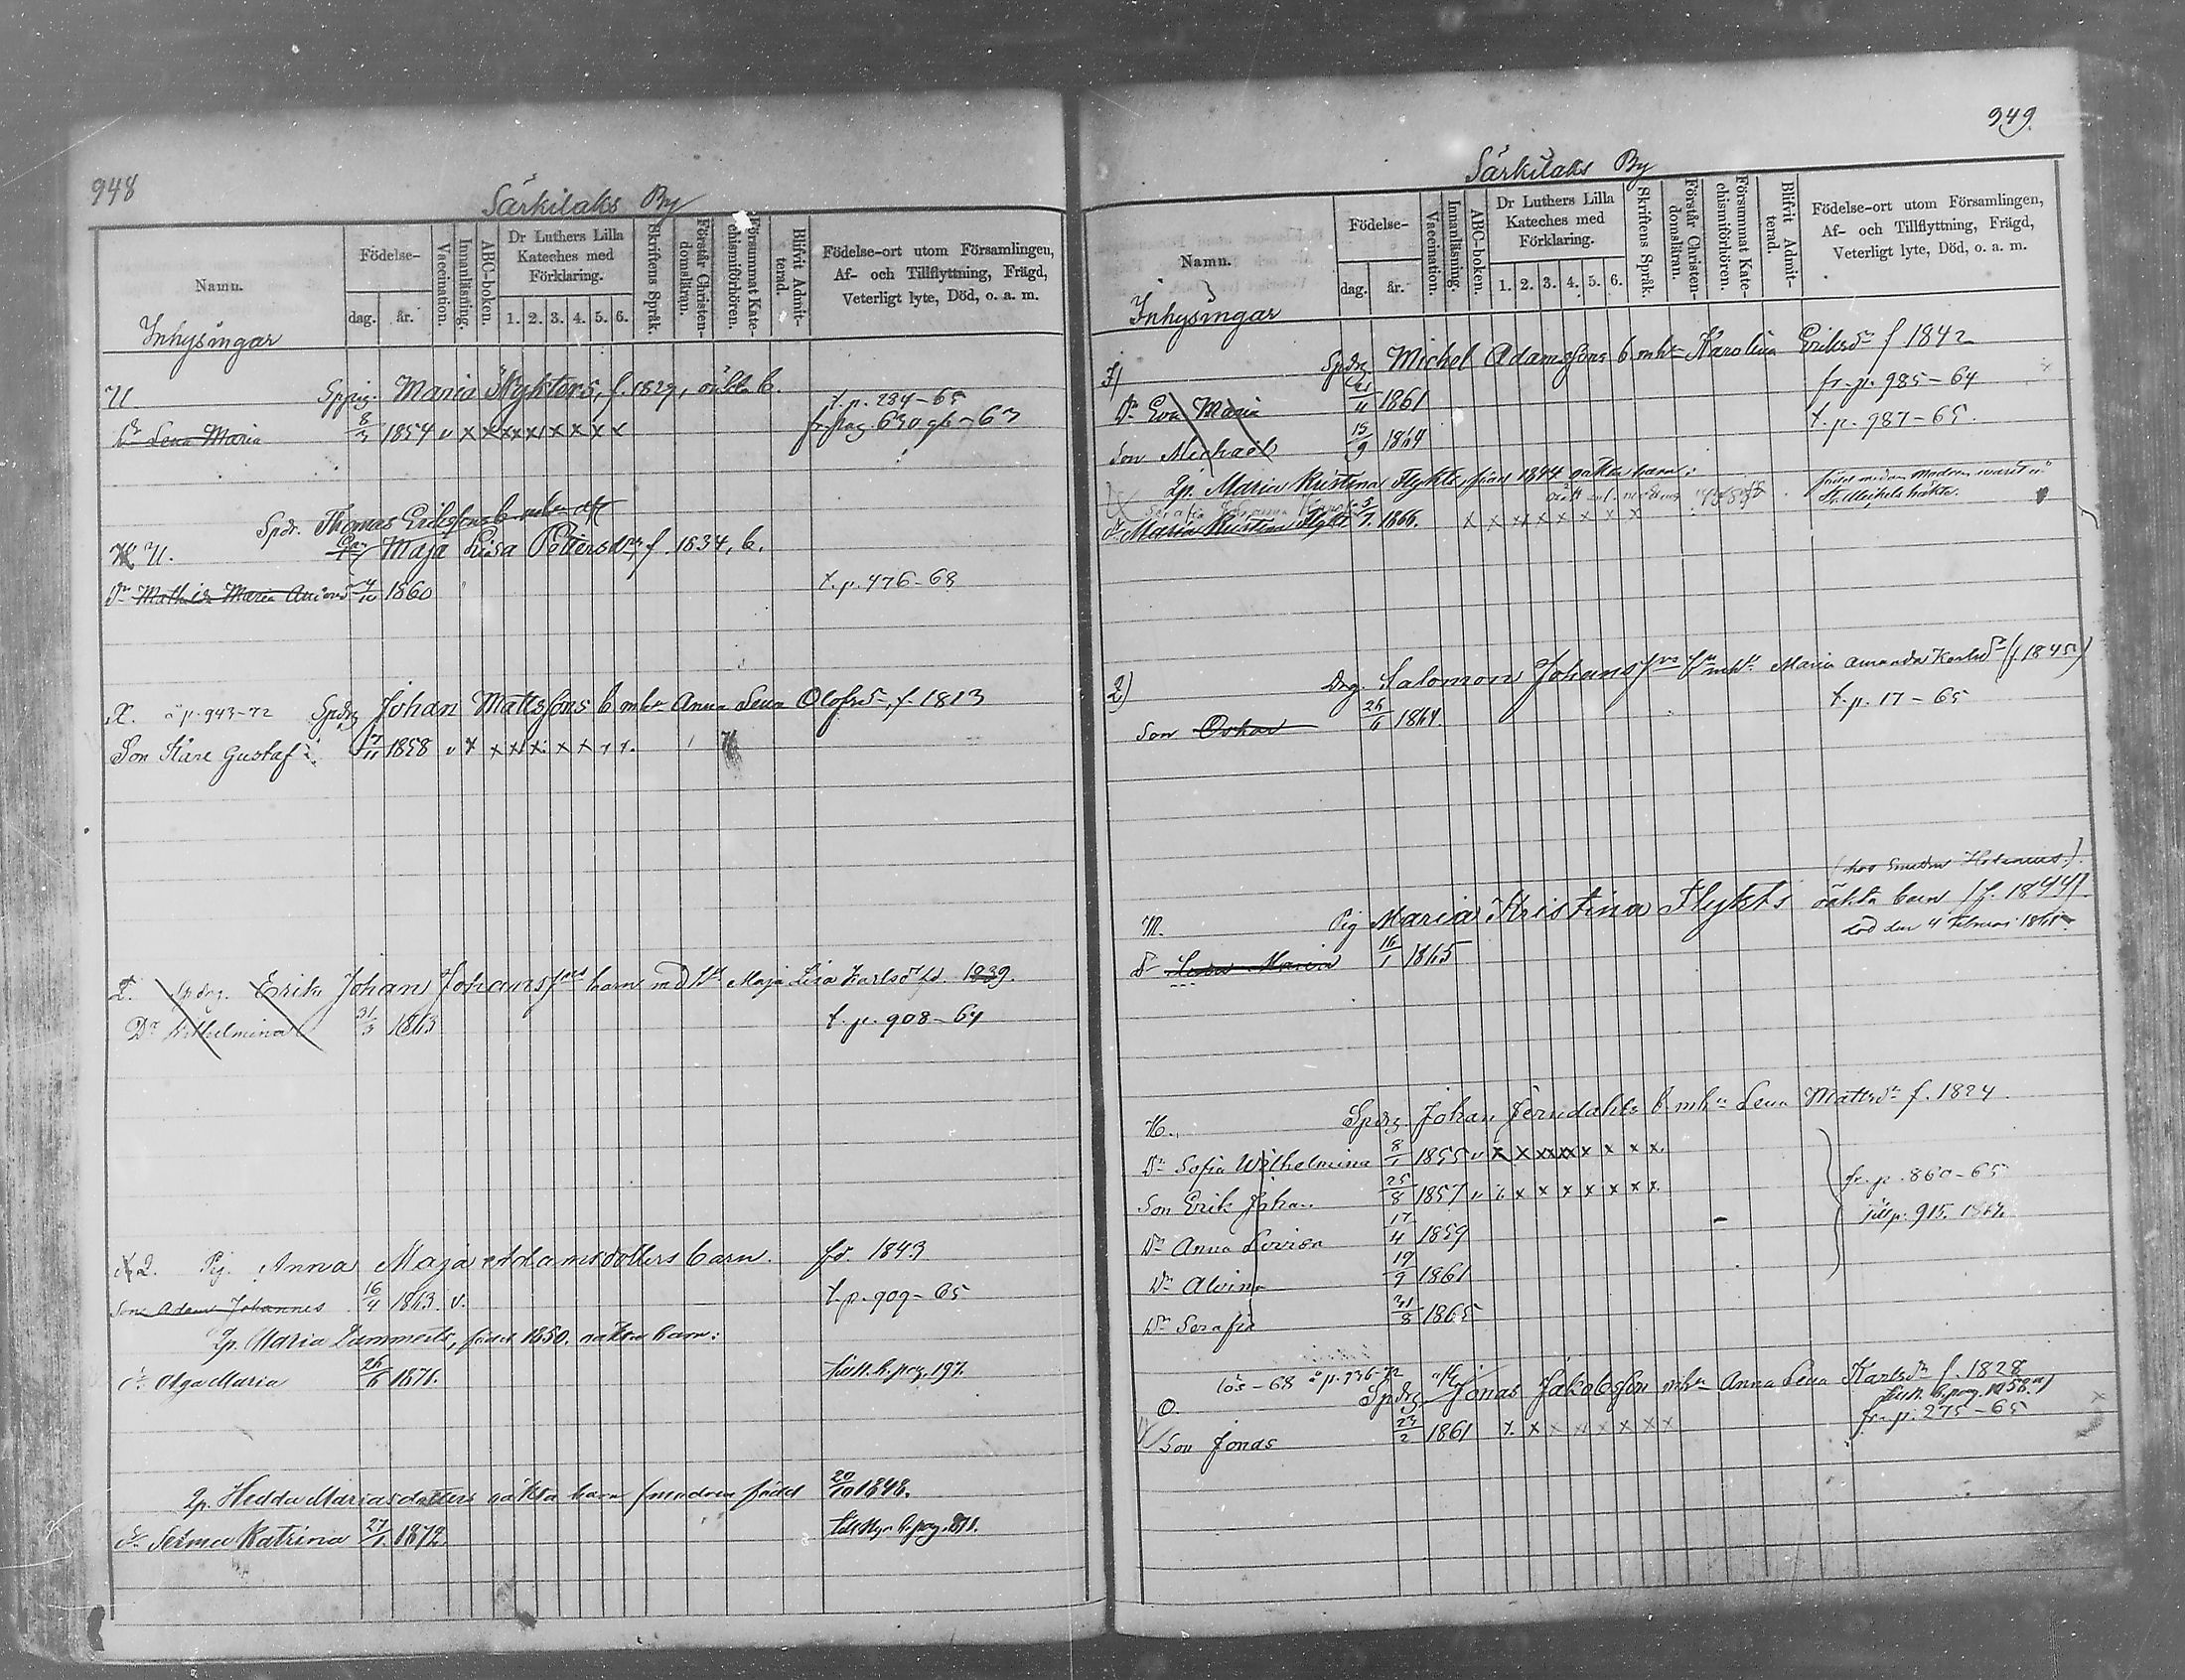 948
Särkilaks By
Namn.
Födelse-
dag.
år.
Vaccination.
Innanläsning.
ABC-boken.
Dr Luthers Lilla
Kateches med
Förklaring.
1. 2. 3. 4. 5. 6.
Skriftens Språk.
Förstår Christen-
domsläran.
Försummat Kate-
chismiförhören.
Blifvit Admit-
terad.
Födelse-ort utom Församlingen,
Af- och Tillflyttning, Frägd,
Veterligt lyte, Död, o. a. m.
Inhysingar
Maria f. 1829, oäkta b.
t. p. 234-65
Lena Maria 8/3 1854 v x x x x x x x x x
fr. pag 630 63
Spdr. Thomas Erikssons
U. Maja Lisa Pettersdr f. 1834, b.
Dr Mathilda Maria 4/10 1860
t. p. 476-68
X. å p. 943-72 Spdrg Johan Mattssons b mhu Anna Lena Olofsdr, f. 1813
Son Kare Gustaf 7/11 1858 v x x x x x x
Erik Johan Johanssons barn md Maja Lisa Karlsdr fd. 1839.
Dr Wilhelmina 31/3 1863
t. p. 908-64
2. Pig. Anna Maja Adamsdotters barn. fd. 1843
Son Adam Johannes 16/4 1863. v.
t. p. 909-65
Ip. Maria Lammerts, född 1850. oäkta barn:
dr Olga Maria 26/6 1871.
till n. b. pag. 197.
Ip. Hedda Mariasdotters oäkta barn (modren född 20/10 1848.
dr Selma Katrina 27/1 1872
till Nya b. pag. 871.
949
Särkilaks By
Namn.
Födelse-
dag.
år.
Vaccination.
Innanläsning.
ABC-boken.
Dr Luthers Lilla
Kateches med
Förklaring.
1. 2. 3. 4. 5. 6.
Skriftens Språk.
Förstår Christen-
domsläran.
Försummat Kate-
chismiförhören.
Blifvit Admit-
terad.
Födelse-ort utom Församlingen,
Af- och Tillflyttning, Frägd,
Veterligt lyte, Död, o. a. m.
Inhysingar
Spdrg Michel Adamssons b mhu Karolina Eriksdr f 1842
fr. p. 985-64
Dr Eva Maria 1861
t. p. 987-65.
Son Michael 15/9 1864
Ip. Maria Kristina Flykts, född 1844 oäkta barn:
född medan modren warit i
St. Michels häkte.
dr Maria Kristina 1866. x x x x x x x x
2) Drg. Salomon Johanssons b mhu Maria Amanda Karlsdr (f. 1845)
t. p. 17-65
Son Oskar 26/6 1864
(hos Smeden
M. Pig Maria Kristina Flykts oäkta barn (f. 1844)
död den 4 Februari 1865
dr Lena Maria 16/1 1865
H. Spdrg Johan Jerndahls b mhu Lena Mattsdr f. 1824
Dr Sofia Wilhelmina 8/1 1855 v x x x x x x x x x.
Son Erik Johan 25/8 1857 v x x x x x x x x
fr. p. 860-65
till p. 915.
Dr Anna Lovisa 17/4 1859
Dr Alvina 19/9 1861
Dr Serafia 31/8 1865
lös-68 å p. 936-72
O. Spdrg Jonas Jakobsson mhu Anna Lena Karlsdr f. 1828
till n. b. pag. 1058.
fr. p. 275-65
Son Jonas 23/2 1861 x x x x x x x x